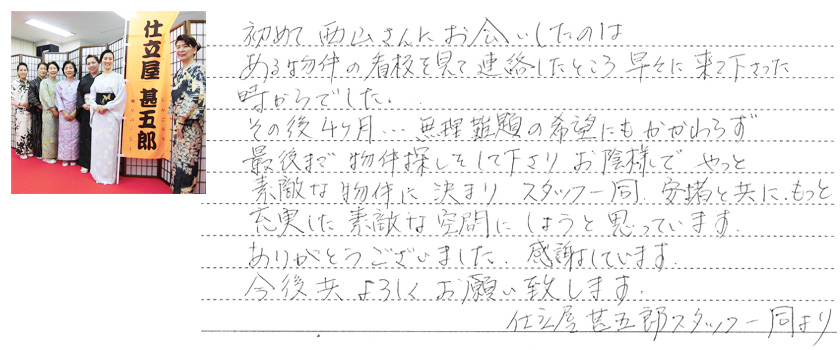 仕立屋 甚五郎
初めて西山さんにお会いしたのは
ある物件の看板を見て連絡したところ早々に来て下さった
時からでした。
その後4ヶ月…無理難題の希望にもかかわらず
最後まで物件探しをして下さりお陰様でやっと
素敵な物件に決まりスタッフ一同、安堵と共に、もっと
充実した素敵な空間にしようと思っています。
ありがとうございました。感謝しています。
今後共よろしくお願い致します。
仕立屋甚五郎スタッフ一同より